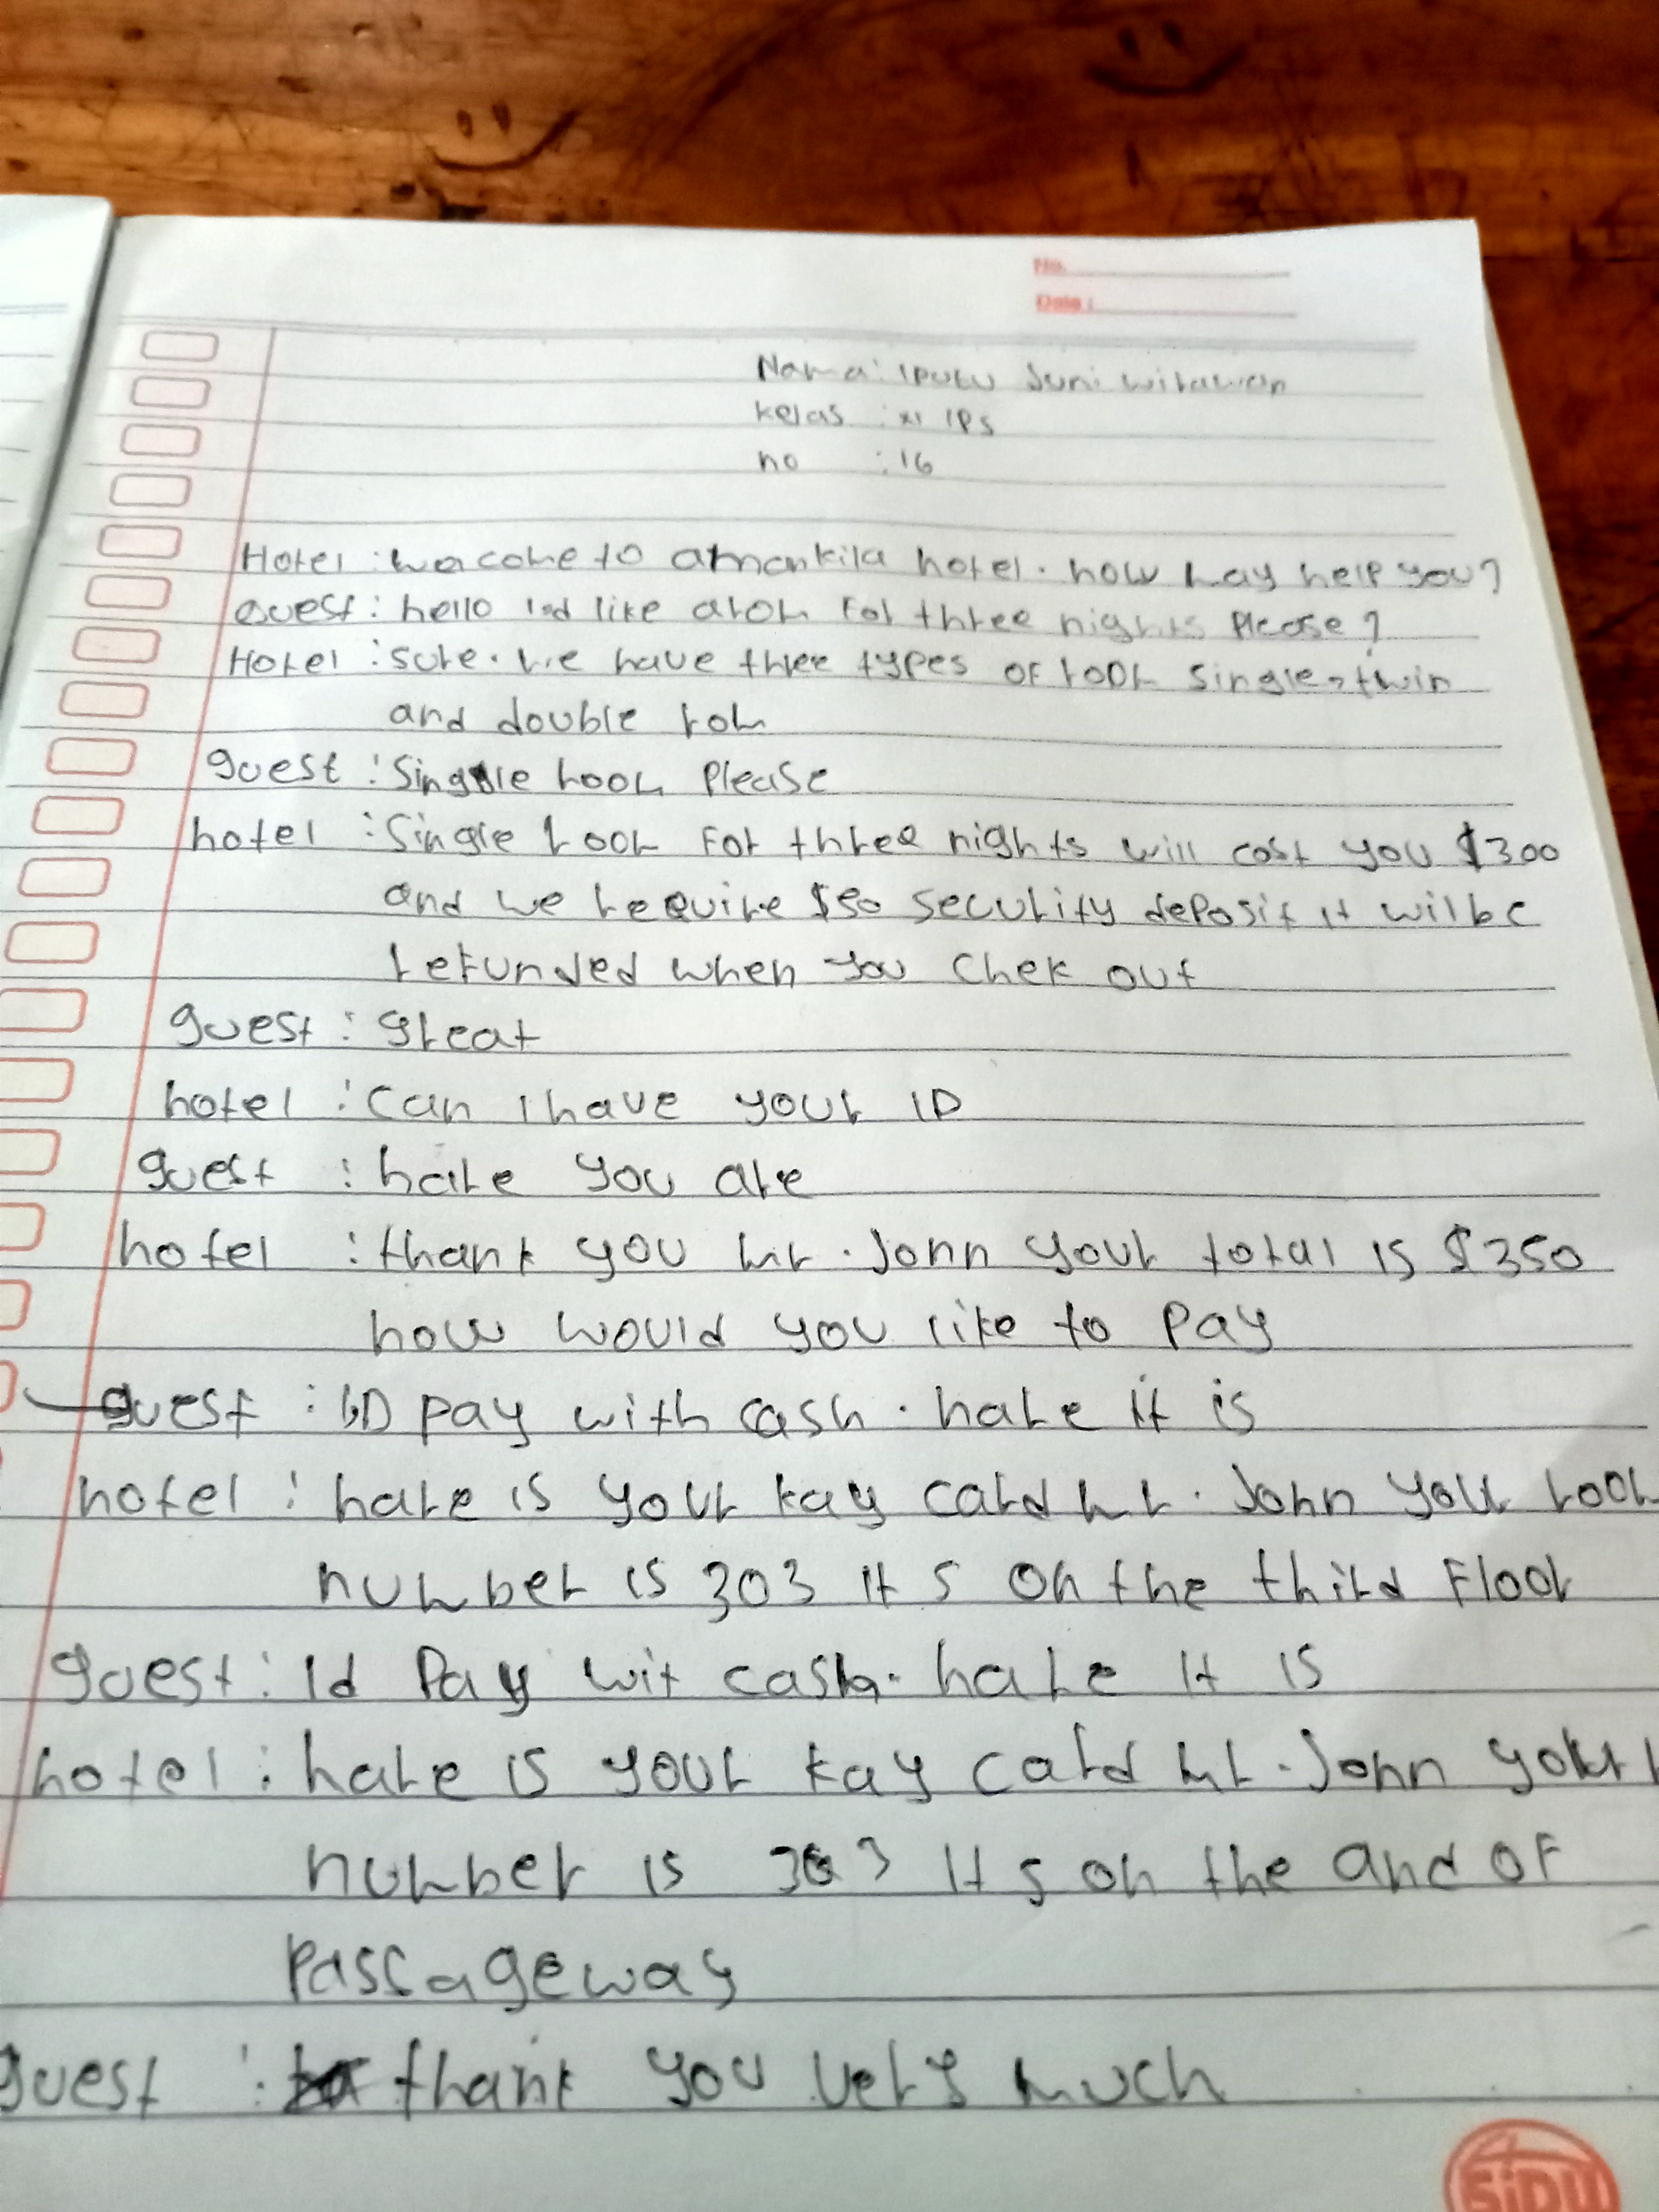 No.
Date :
Nama : I Putu Juni wirawan
kelas : XI IPS
no : 16
Hotel : welcome to amankila hotel. how may help you?
Guest : hello I'd like arom for three nights Please?
Hotel : sure. we have three types of room single, twin
and double rom
guest : Single room Please
hotel : Single room for three nights will cost you $300
and we require $50 security deposit it wilbe
refunded when you chek out
guest : great
hotel : can I have your ID
guest : hare you are
hotel : thank you mr. John your total is $350
how would you like to pay
guest : I,D pay with cash. hare it is
hotel : hare is your kay card mr. John your room
number is 303 It s on the third Floor
guest : Id Pay wit cash. hare It is
hotel : hare is your kay card mr. John your
number is 303 It s on the and of
passageway
guest : thank you very much
SiDU